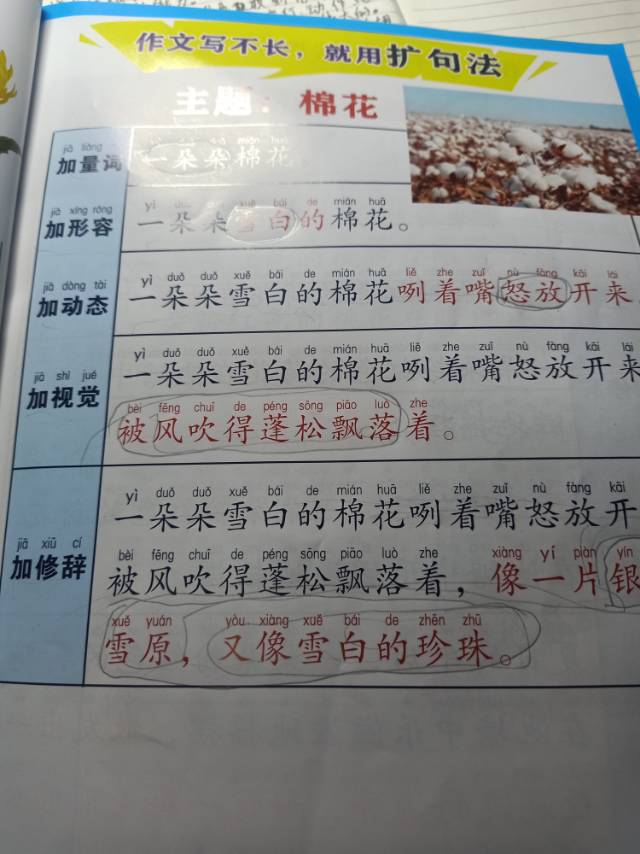 作文写不长，就用扩句法
主题：棉花
jiā liàng
加量词
mián huā
一朵朵棉花
jiā xíng róng
加形容
yì duǒ duǒ xuě bái de mián huā
一朵朵雪白的棉花。
jiā dòng tài
加动态
yì duǒ duǒ xuě bái de mián huā liě zhe zuǐ nù fàng kāi lái
一朵朵雪白的棉花咧着嘴怒放开来
jiā shì jué
加视觉
yì duǒ duǒ xuě bái de mián huā liě zhe zuǐ nù fàng kāi lái
一朵朵雪白的棉花咧着嘴怒放开来
bèi fēng chuī de péng sōng piāo luò zhe
被风吹得蓬松飘落着。
jiā xiū cí
加修辞
yì duǒ duǒ xuě bái de mián huā liě zhe zuǐ nù fàng kāi
一朵朵雪白的棉花咧着嘴怒放开
bèi fēng chuī de péng sōng piāo luò zhe xiàng yí piàn yín
被风吹得蓬松飘落着，像一片银
xuě yuán yòu xiàng xuě bái de zhēn zhū
雪原，又像雪白的珍珠。